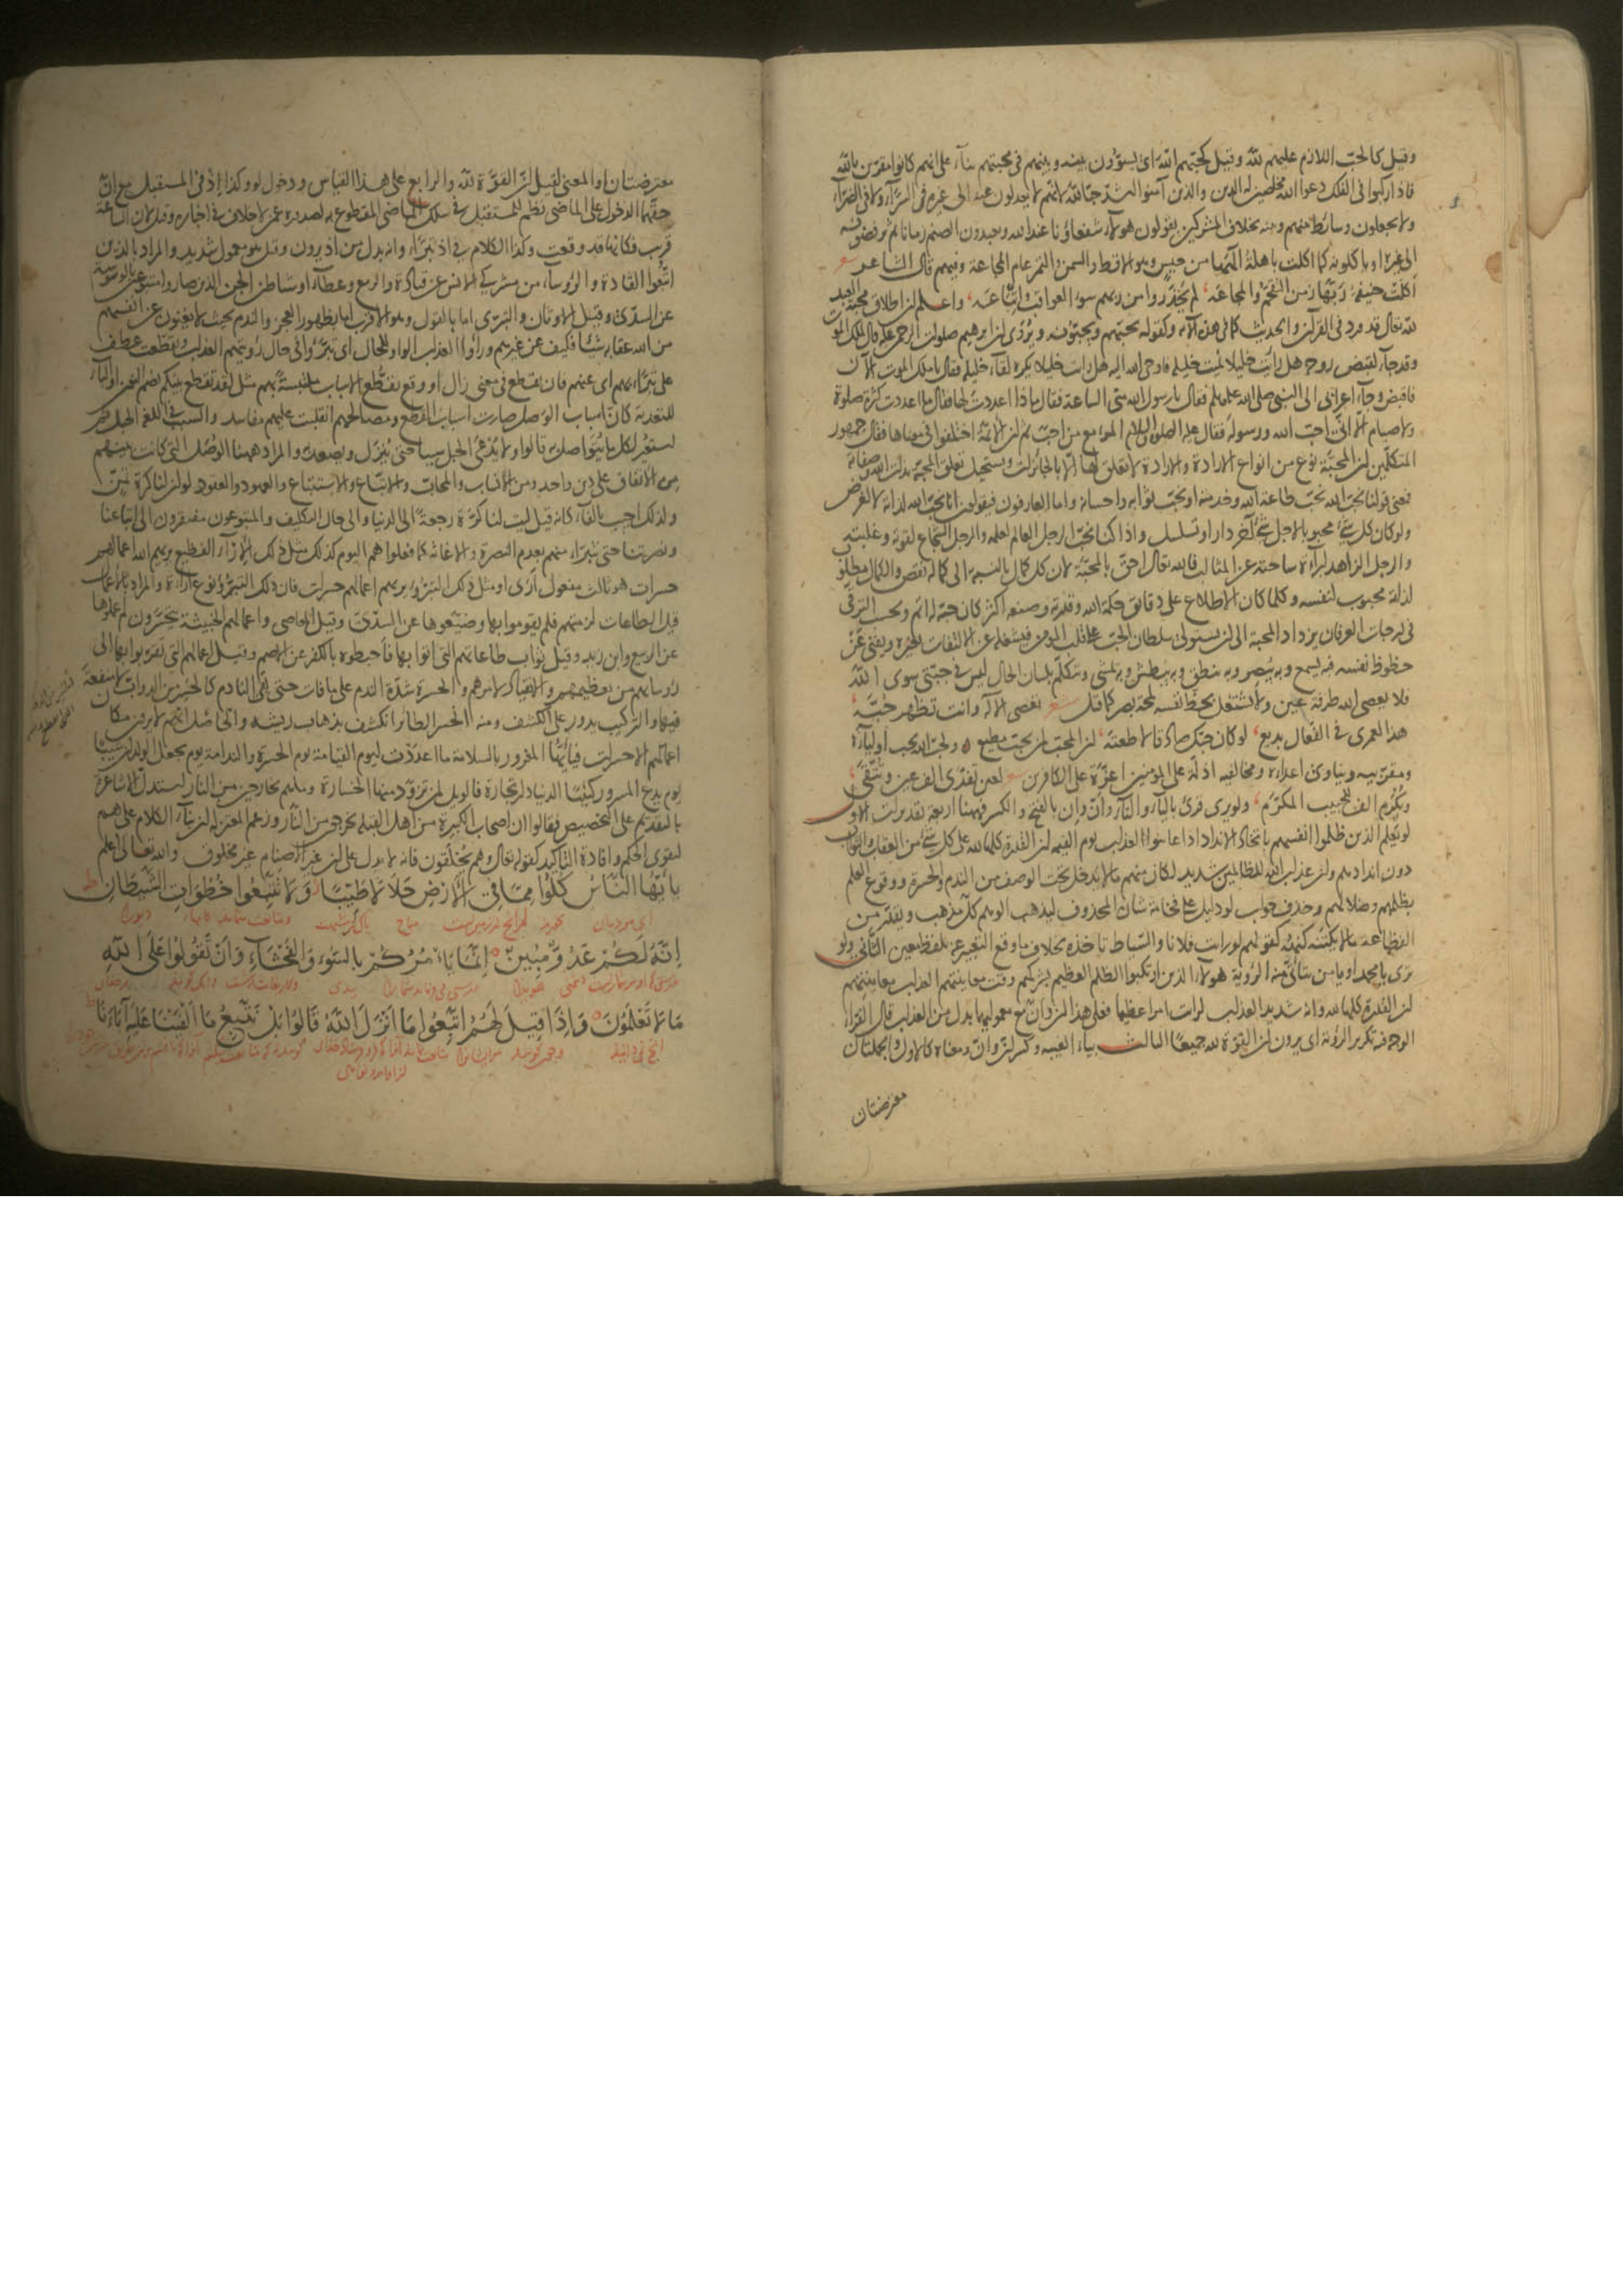 وقيل كالحب اللازم عليهم لله وقيل كحبهم الله اى يسوّون بينه وبينهم فى محبتهم بناء على انهم كانوا مقرين بالله
فاذا ركبوا فى الفلك دعوا الله مخلصين له الدين والذين آمنوا اشد حبا لله لانهم لا يعدلون عنه الى غيره فى السراء ولا فى الضراء
ولا يجعلون وسائط بينهم وبينه بخلاف المشركين يقولون هولاء شفعاؤنا عند الله ويعبدون الصنم زمانا ثم يرفضونه
الى غيره او ياكلونه كما اكلت باهلة الهها من حيس وهو الاقط والسمن والتمر عام المجاعة وفيهم قال الشاعر
اكلت حنيفة ربها زمن التقحم والمجاعه لم يحذروا من ربهم سوء العواقب والتباعه واعلم ان اطلاق محبة العبد
لله تعالى قد ورد فى القرآن والحديث كما فى هذه الآية وكقوله يحبهم ويحبونه ويروى ان ابرهيم صلوات الرحمن عليه قال لملك الموت
وقد جاء لقبض روحه هل رأيت خليلا يميت خليله فاوحى الله اليه هل رايت خليلا يكره لقاء خليله فقال يا ملك الموت الآن
فاقبض وجاء اعرابى الى النبى صلى الله عليه وسلم فقال يا رسول الله متى الساعة فقال ماذا اعددت لها فقال ما اعددت كثرة صلوة
ولا صيام الا انى احب الله ورسوله فقال عليه الصلوة والسلام المرء مع من احب ثم ان الامة اختلفوا فى معناها فقال جمهور
المتكلمين ان المحبة نوع من انواع الارادة والارادة لا تعلق لها الا بالجائزات ويستحيل تعلق المحبة بذات الله وصفاته
فمعنى قولنا نحب الله نحب طاعة الله وخدمته او نحب ثوابه واحسانه واما العارفون فيقولون انا نحب الله لذاته لا لغرض
ولو كان كل شئ محبوبا لاجل شئ آخر دار او تسلسل واذا كنا نحب الرجل العالم لعلمه والرجل الشجاع لقوته وغلبته
والرجل الزاهد لبراءة ساحته عن المثالب فالله تعالى احق بالمحبة لان كل كمال بالنسبة الى كماله نقص والكمال مطلق
لذاته محبوب لنفسه وكلما كان الاطلاع على دقائق حكمة الله وقدرته وصنعه اكثر كان حبه له اتم وبحسب الترقى
فى درجات العرفان يزداد المحبة الى ان يستولى سلطان الحب على قلب المومن فيشغله عن التفات الى غيره ويفنى عن
حظوظ نفسه فبه يسمع وبه يبصر وبه ينطق وبه يبطش وبه يمشى ويتكلم بلسان الحال ليس فى جبتى سوى الله
فلا يعصى الله طرفة عين ولا يشتغل بحظ نفسه لمحة بصر كما قيل تعصى الاله وانت تظهر حبه
هذا لعمرى فى الفعال بديع لو كان حبك صادقا لاطعته ان المحب لمن يحب مطيع ومن احب الله يحب اولياءه
ومقربيه ويناوى اعداءه ومخالفيه اذلة على المؤمنين اعزة على الكافرين لعين تفدى الف عين وتتقى
ويكرم الف للحبيب المكرم ولو يرى قرئ بالياء والتاء وأن وإن بالفتح والكسر فههنا اربعة تقديرات الاول
لو يعلم الذين ظلموا انفسهم باتخاذ الانداد اذا عاينوا العذاب يوم القيمة ان القدرة كلها لله على كل شئ من العقاب والثواب
دون اندادهم وان عذاب الله للظالمين شديد لكان منهم ما لا يدخل تحت الوصف من الندم والحسرة ووقوع العلم
بظلمهم وضلالهم وحذف جواب لو دليل على فخامة شان المحذوف ليذهب الوهم كل مذهب ويقدر من
الفظاعة ما لا يكتنه كنهه كقولهم لو رايت فلانا والسياط تاخذه بخلاف ما وقع التعبير عنه بلفظ معين الثانى ولو
ترى يا محمد او يا من يتاتى منه الرؤية هولاء الذين ارتكبوا الظلم العظيم بشركهم وقت معاينتهم العذاب
ان القدرة كلها لله وانه شديد العذاب لرايت امرا عظيما فعلى هذا ان وأن مع معموليهما بدل من العذاب قال الفراء
الوجه فيه تكرير الرؤية اى يرون ان القوة لله جميعا الثالث بياء الغيبة وكسر ان وان ومعناه كالاول والجملتان
معترضتان
معترضتان او المعنى لقيل ان القوة لله والرابع على هذا القياس ودخول لو وكذا اذ فى المستقبل مع ان
حقهما الدخول على الماضى نظم للمستقبل فى سلك الماضى المقطوع به لصدوره عمن لا خلاف فى اخباره وقيل لان الساعة
قريب فكانها قد وقعت وكذا الكلام فى اذ تبرأ وانه بدل من اذ يرون وقيل هو معمول شديد والمراد بالذين
اتبعوا القادة والرؤساء من مشركى الانس عن قتادة والربيع وعطاء او شياطين الجن الذين صاروا متبوعين بالوسوسة
عن السدى وقيل الاوثان والتبرى اما بالقول وهو الاقرب اما بظهور العجز والندم بحيث لا يغنون عن انفسهم
من الله عقابه شيئا فكيف عن غيرهم ورأوا العذاب الواو للحال اى تبرؤا فى حال رؤيتهم العذاب وتقطعت عطف
على تبرأ بهم اى عنهم فان تقطع فى معنى زال او وقع تقطع الاسباب ملتبسة بهم مثل لقد تقطع بينكم
للتعدية كان اسباب الوصل صارت اسباب القطع ومصالحهم انقلبت عليهم مفاسد والسبب فى اللغة الحبل ثم
استعير لكل ما يتواصل به قالوا ولا يدعى الحبل سببا حتى ينزل ويصعد به والمراد ههنا الوصل التى كانت بينهم
من الاتفاق على دين واحد ومن الانساب والمحاب والاتباع والاستتباع والعهود والعقود لو ان لنا كرة تمن
ولذلك اجيب بالفاء كانه قيل ليت لنا كرة رجعة الى الدنيا والى حال التكليف والمتبوعون مفتقرون الى اتباعنا
ونصرتنا حتى نتبرأ منهم بعدم النصرة والاغاثة كما فعلوا هم اليوم كذلك مثل ذلك الاراء الفظيع يريهم الله اعمالهم
حسرات هو ثالث مفعول ارى او مثل ذلك التبرؤ يريهم اعمالهم حسرات فان ذلك التبرؤ نوع اراءة والمراد بالاعمال
قيل الطاعات لزمتهم فلم يقوموا بها وضيعوها عن السدى وقيل المعاصى واعمالهم الخبيثة يتحسرون لم عملوها
عن الربيع وابن زيد وقيل ثواب طاعاتهم التى اتوا بها فاحبطوه بالكفر عن الاصم وقيل اعمالهم التى تقربوا بها الى
رؤسائهم من تعظيمهم والانقياد لامرهم والحسرة شدة الندم على ما فات حتى بقى النادم كالحسير من الدواب لا منفعة
فيها والتركيب يدور على الكشف ومنه انحسر الطائر انكشف بذهاب ريشه والحاصل انهم لا يرون مكان
اعمالهم الا حسرات فيا ايها المغرور بالسلامة ما اعددت ليوم القيامة يوم الحسرة والندامة يوم يجعل الولدان شيبا
يوم يدع المسرور كئيبا الدنيا دار تجارة فالويل لمن تزود منها الخسارة وما هم بخارجين من النار استدل الاشاعرة
بالتقديم على التخصيص فقالوا ان اصحاب الكبيرة من اهل القبلة يخرجون من النار وزعم المعتزلة ان بناء الكلام على هم
لتقوى الحكم وافادة التاكيد كقوله تعالى وهم يخلقون فانه لا يدل على ان غير الاصنام غير مخلوق والله تعالى اعلم
يا ايها الناس كلوا مما فى الارض حلالا طيبا ولا تتبعوا خطوات الشيطان ط
اى مردمان بخوريد مباح
انه لكم عدو مبين انما يامركم بالسوء والفحشاء وان تقولوا على الله
ما لا تعلمون واذا قيل لهم اتبعوا ما انزل الله قالوا بل نتبع ما الفينا عليه آباءنا ط